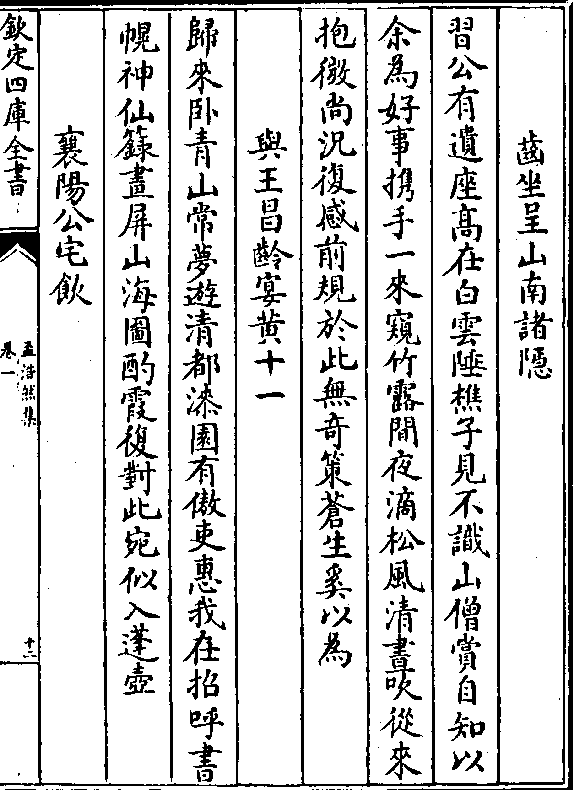 齒坐呈山南諸隠
習公有遺座高在白雲陲樵子見不識山僧賞自知以
余為好事携手一來窺竹露閒夜滴松風清晝吹從來
抱微尚況復感前規於此無奇策蒼生奚以為
與王昌齡宴黄十一
歸來卧青山常夢遊清都漆園有傲吏惠我在招呼書
幌神仙籙畫屏山海圖酌霞復對此宛似入蓬壺
襄陽公宅飲
欽定四庫全書
孟浩然集
卷一
十二